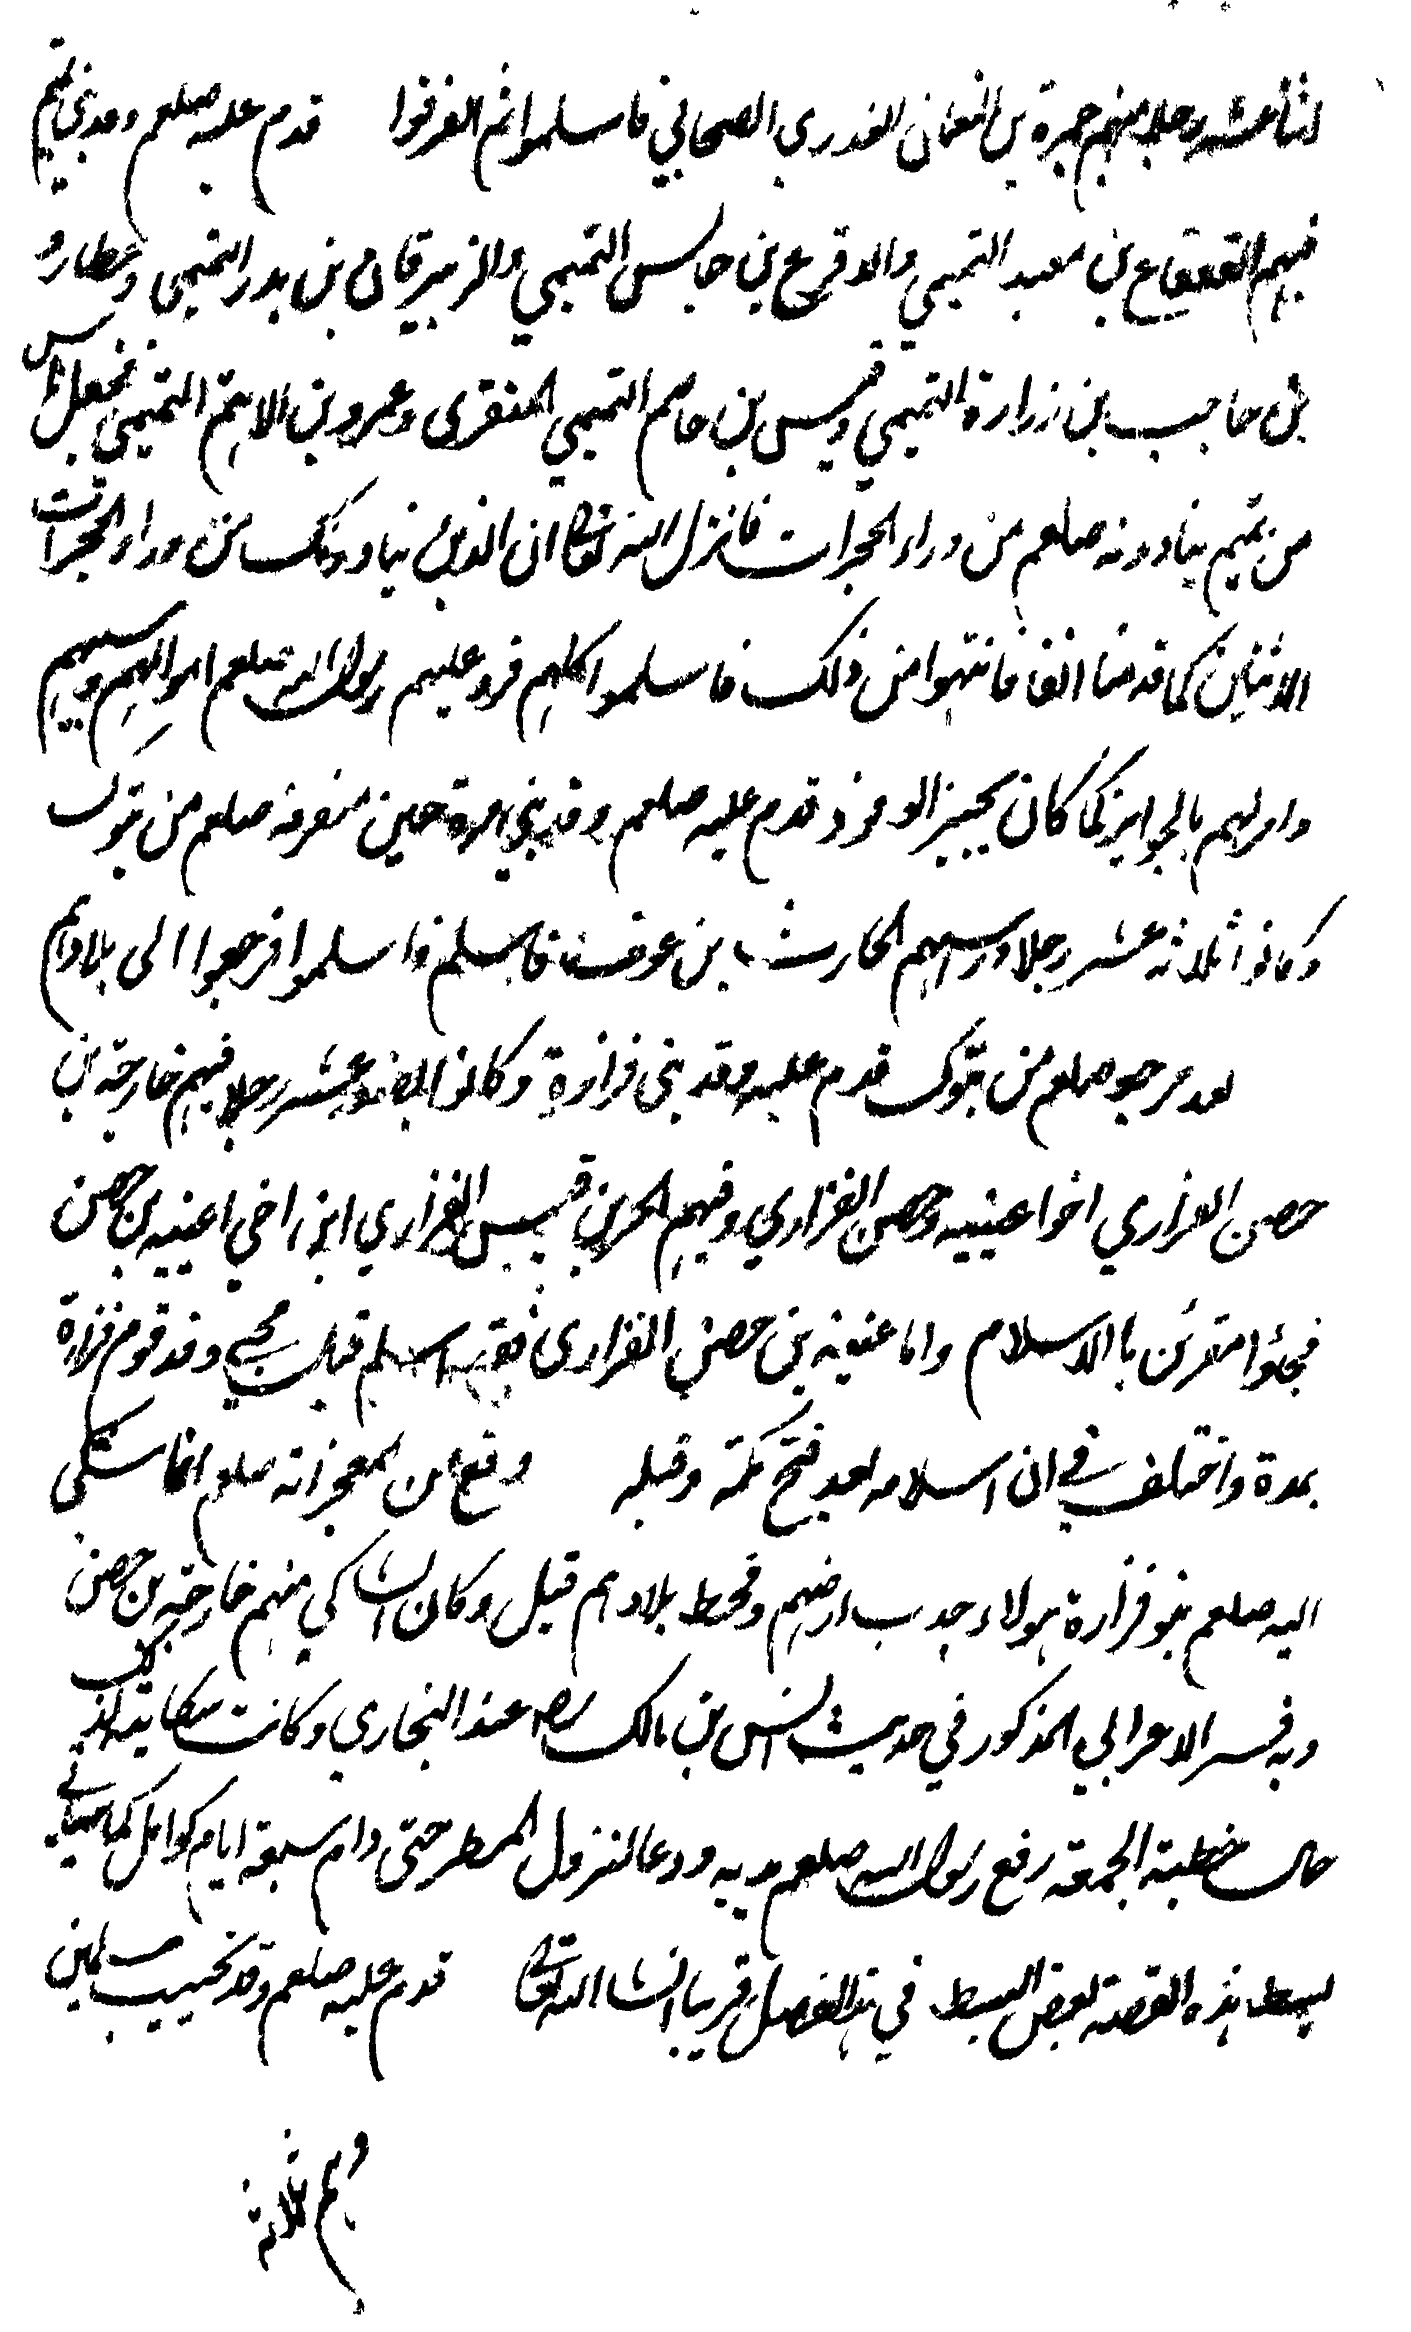 اثنا عشر رجلا منهم جمرة بن النعمان العذري الصحابي فاسلموا ثم انصرفوا قدم عليه صلعم وفد بني تميم
فيهم القعقاع بن معبد التميمي والاقرع بن حابس التميمي والزبرقان بن بدر التميمي وعطارد
بن حاجب بن زرارة التميمي وقيس بن عاصم التميمي المنقري وعمرو بن الاهتم التميمي فجعل ناس
من تميم ينادونه صلعم من وراء الحجرات فانزل الله تعالى ان الذين ينادونك من وراء الحجرات
الاثنين كما قدمنا انفا فانتهوا من ذلك فاسلموا كلهم فرد عليهم رسول الله صلعم اموالهم وسبيهم
وامر لهم بالجوايز كما كان يجيز الوفود قدم عليه صلعم وفد بني مرة حين منصرفه صلعم من تبوك
وكانوا ثلاثه عشر رجلا ورأسهم الحارث بن عوف فاسلم واسلموا فرجعوا الى بلادهم
بعد مرجعه صلعم من تبوك قدم عليه وفد بني فزارة وكانوا بضعة عشر رجلا فيهم خارجة بن
حصن الفزاري اخوا عيينيه وحصن الفزاري وفيهم الحر بن قيس الفزاري ابن اخي اعيينه بن حصن
فجاؤا مقرين باالاسلام واما عيينه بن حصن الفزاري فقد اسلم قبل مجي وفد قومه فزارة
بمدة واختلف في ان اسلامه بعد فتح مكة وقبله وقع من لمعجزاته صلعم انما شكى
اليه صلعم بنو فزارة هولاء جدب ارضهم وقحط بلادهم قيل وكان الشاكي منهم خارجة بن حصن
وبه فسر الاعرابي المذكور في حديث انس بن مالك رضه عند البخاري وكانت شكايته لذلك
حال خطبة الجمعة رفع رسول الله صلعم يديه ودعا لنزول المطر حتى دام سبعة ايام كوامل كما سياتي
بسط هذه القصة بعض البسط في هذا الفصل قريبا انشا الله تعالى قدم عليه صلعم وفد تجيب مسلمين
وهم ثلاثة